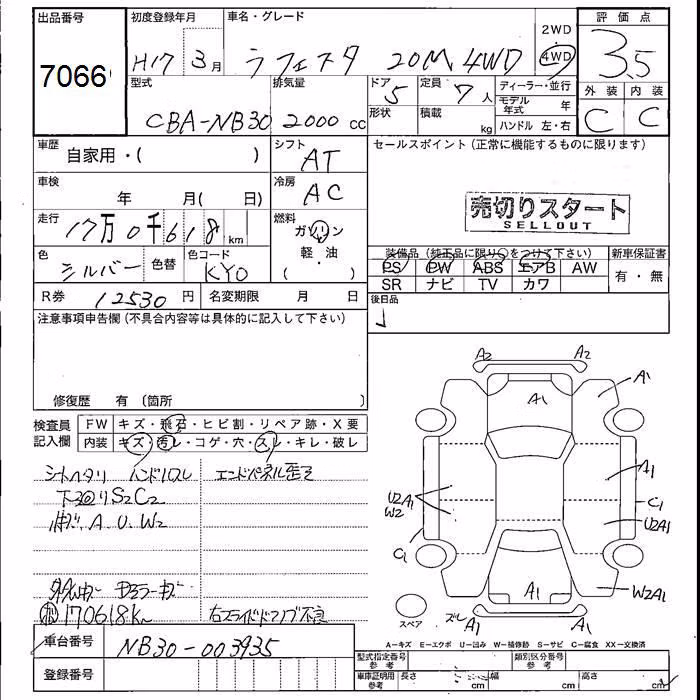 出品番号 初度登録年月 車名・グレード 2WD 評価点
7066 H17 3月 ラフェスタ 20M 4WD 4WD 3.5
型式 排気量 ドア 5 定員 7人 ディーラー・並行 外装 内装
CBA-NB30 2000cc 形状 積載 kg モデル年式 年 C C
ハンドル 左・右
車歴 自家用・( ) シフト AT セールスポイント(正常に機能するものに限ります)
車検 年 月( 日) 冷房 AC
売切りスタート
SELLOUT
走行 17万0千618km 燃料 ガソリン・軽油
色 シルバー 色替 色コード KY0
装備品(純正品に限り○をつけて下さい) 新車保証書
PS PW ABS エアB AW 有・無
SR ナビ TV カワ
R券 12530円 名変期限 月 日 後日品
注意事項申告欄(不具合内容等は具体的に記入して下さい)
修復歴 有(箇所
検査員記入欄 FW キズ・飛石・ヒビ割・リペア跡・X要
内装 キズ・汚レ・コゲ・穴・スレ・キレ・破レ
シートヘタリ ハンドルスレ エンドパネル歪ミ
下廻りS2C2
A.U.W2
170618km
車台番号 NB30-003935
登録番号
A2 A2
A1 A1
A1
U2A1 W2 C1
U2A1
C1
A1 W2A1
スペア ズレ A1 A1
A=キズ E=エクボ U=凹み W=補修跡 S=サビ C=腐食 XX=交換済
型式指定番号 参考 類別区分番号 参考
車庫証明用 参考 長さ cm 幅 cm 高さ cm